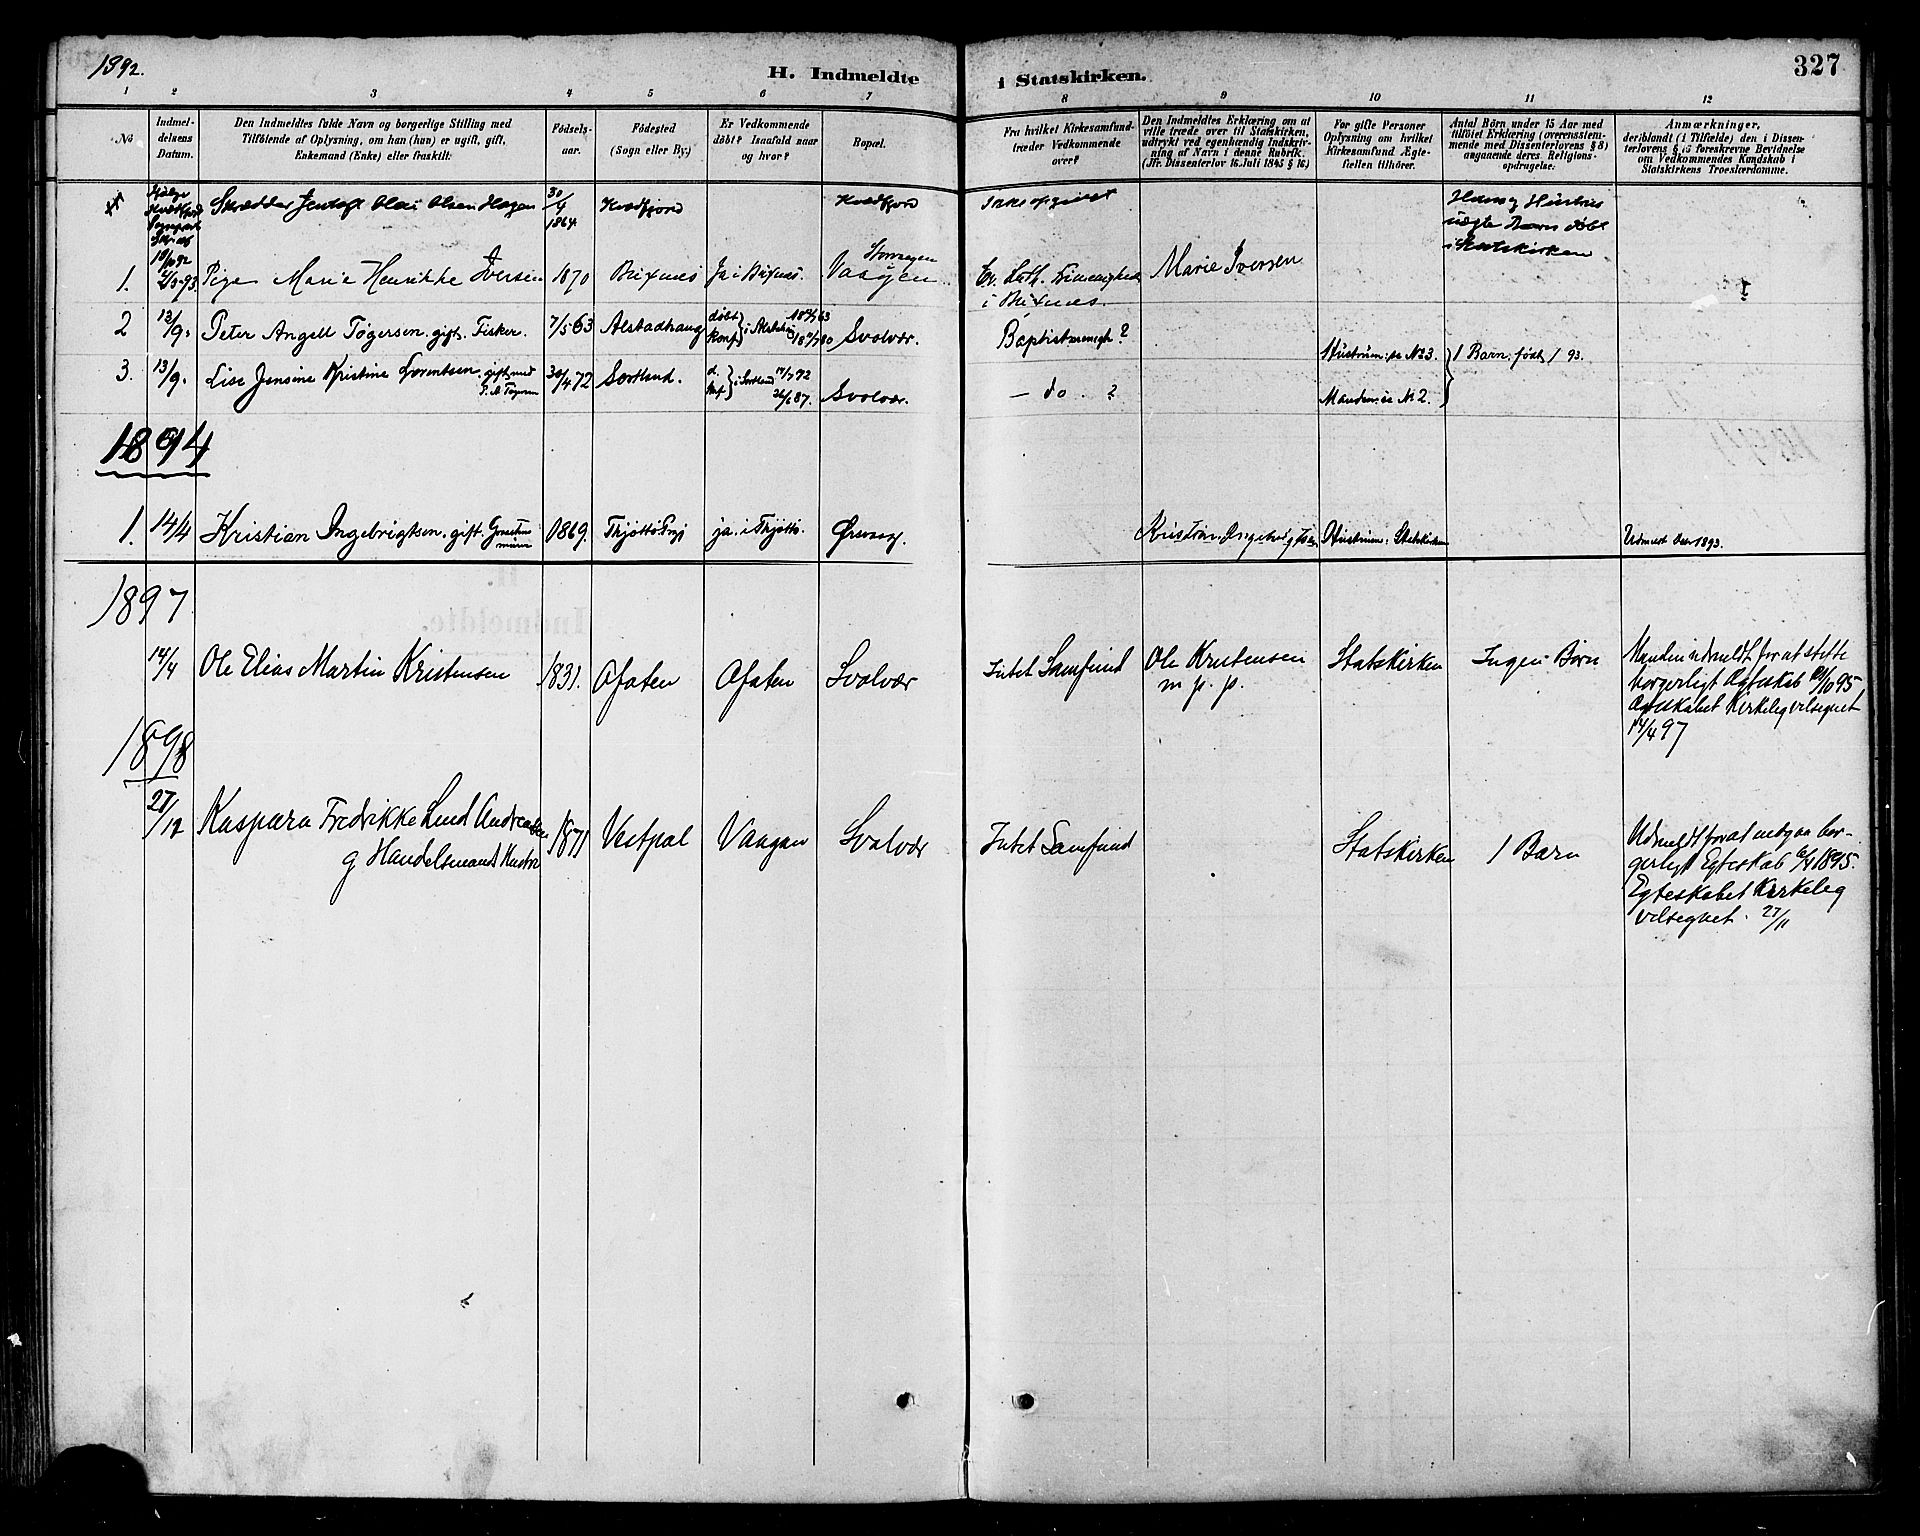 1892.
H. Indmeldte i Statskirken.
327
1 2 3 4 5 6 7 8 9 10 11 12
No
Indmel-
delsens
Datum.
Den Indmeldtes fulde Navn og borgerlige Stilling med
Tilföiende af Oplysning, om han (hun) er ugift, gift,
Enkemand (Enke) eller fraskilt:
Födsels-
aar.
Födested
(Sogn eller By.)
Er Vedkommende
döbt? Isaafald naar
og hvor?
Bopæl.
Fra hvilket Kirkesamfund
træder Vedkommende
over?
Den Indmeldtes Erklæring om at
ville træde over til Statskirken,
udtrykt ved egenhændig Indskriv-
ning af Navn i denne Rubrik.
(Jfr. Dissenterlov 16. Juli 1845 § 16)
For gifte Personer
Oplysning om hvilket
Kirkesamfund Ægte-
fællen tilhörer.
Antal Börn under 15 Aar med
tilföiet Erklæring (overensstem-
mende med Dissenterlovens § 8)
angaaende deres Religions-
opdragelse.
Anmærkninger,
deriblandt (i Tilfælde) den i Dissen-
terlovens § 16 foreskrevne Bevidnelse
om Vedkommendes Kundskab i
Statskirkens Troeslærdomme.
Skrædder Jentoft Olai Olsen Hagen
30/4 1864.
Kvedfjord
Kvedfjord
Ikke opgivet
Hans og Hustrus
uægte Barn döbt
i Statskirken
1. Pige Marie Henrikke Iversen 1870 Buxnes Ja i Buxnes. Vaagen
Ev. Luth. Frimenighed
i Buxnes.
Marie Iversen
2 13/9. Peter Angell Tögersen. gift. Fisker. 7/5 63 Alstadhaug döbt konf. Svolvær.
Baptistmenigh?
Hustrum: se No 3.
1 Barn. födt 1/93.
3. 13/9. Lise Jensine Kristine Lorentsen. gift med
30/4 72 Sortland. d. konf. i Sortland 26/6 87. Svolvær.
— do. ?
Manden: se No 2.
1894
1. 14/4 Kristian Ingebrigtsen. gift. 1869. Thjöttö Prgj ja. i Thjöttö. Örsvaag.
Kristian Ingebrigtsen
Hustruen: Statskirken
Udmeldt Dec 1893.
1897
14/4 Ole Elias Martin Kristensen 1831. Ofoten Ofoten Svolvær
Intet Samfund
Ole Kristensen
m. p. p.
Statskirken
Ingen Börn
Manden udmeldt for at stifte
borgerligt Ægteskab 10/10 95
Ægteskabet Kirkelig velsignet
14/4 97
1898
27/12 Kaspara Fredrikke Lund Andreassen
g Handelsmands Hustru
1871 Vestpol Vaagan Svolvær
Intet Samfund
Statskirken
1 Barn
Udmeldt for at indgaa bor-
gerligt Egteskab 6/4 1895.
Egteskabet Kirkelig
velsignet. 27/11